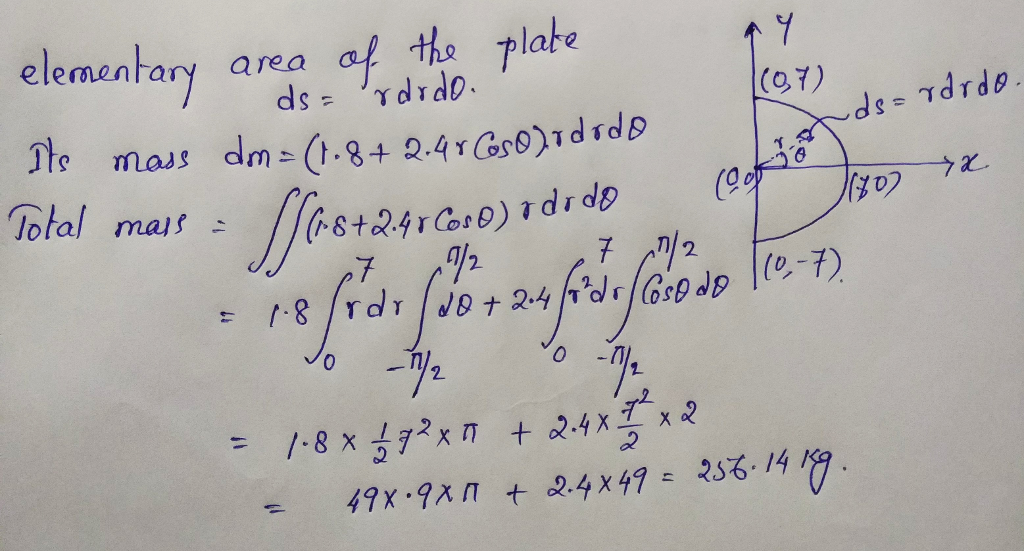 elementary area of the plate
ds = rdrdθ.
Its mass dm = (1.8 + 2.4 r Cosθ) rdrdθ
Total mass = ∬(1.8+2.4 r Cosθ) rdrdθ
= 1.8 ∫₀⁷ rdr ∫_{-π/2}^{π/2} dθ + 2.4 ∫₀⁷ r²dr ∫_{-π/2}^{π/2} Cosθ dθ
= 1.8 × 1/2 7² × π + 2.4 × 7²/2 × 2
= 49 × .9 × π + 2.4 × 49 = 256.14 Kg.
y
(0,7)
ds = rdrdθ.
r
θ
x
(0,0)
(7,0)
(0,-7)